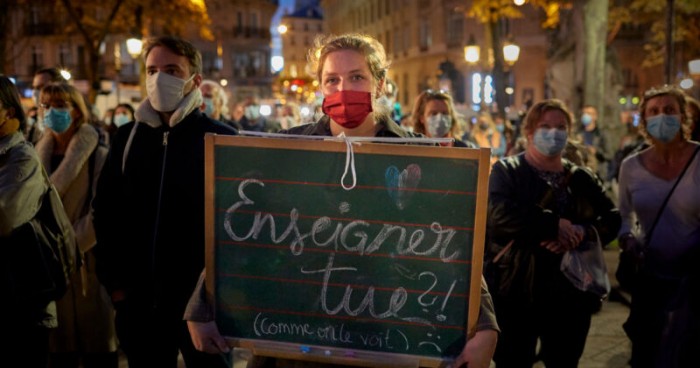 Enseigner
tue?!
(comme on le voit) :(